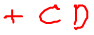 + C D